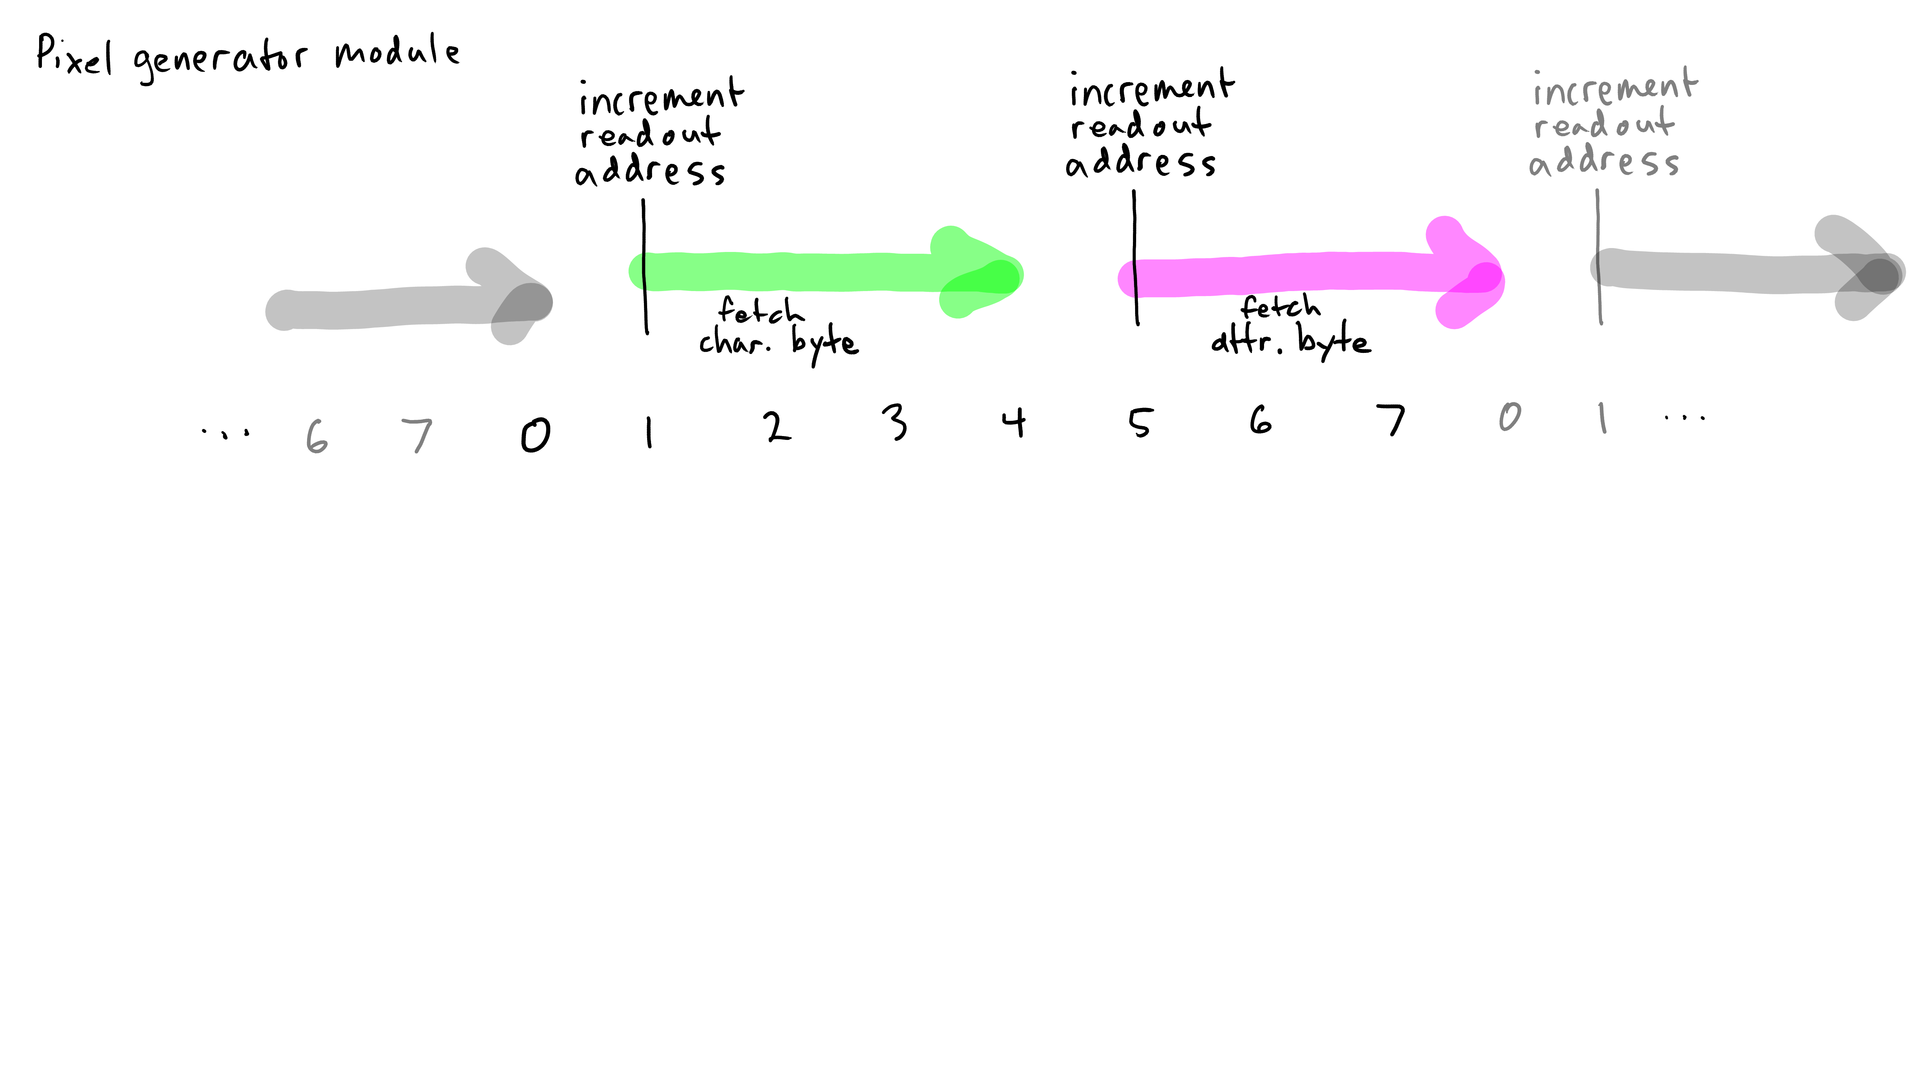 Pixel generator module
increment
readout
address
increment
readout
address
increment
readout
address
fetch
char. byte
fetch
attr. byte
... 6 7 0 1 2 3 4 5 6 7 0 1 ...